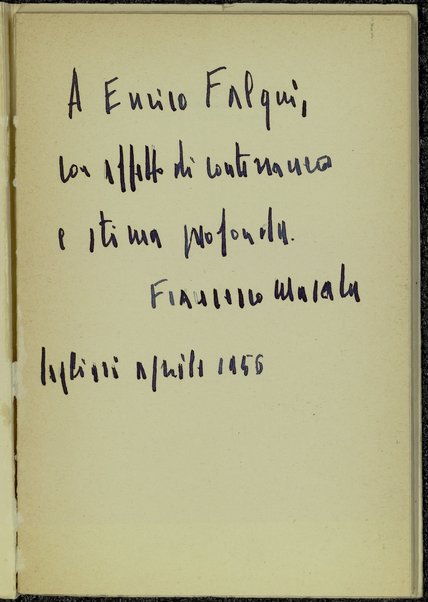 A Enrico Falqui,
con affetto di conterraneo
e stima profonda.
Francesco Masala
Cagliari aprile 1956